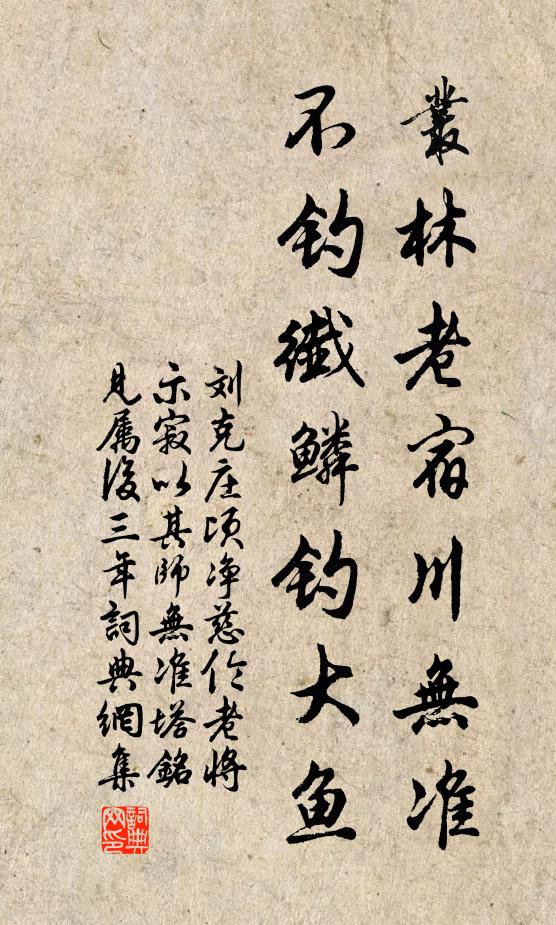 叢林老宿川無准
不钓纖鱗钓大鱼
刘克庄顷净慈伦老将
示寂以其師無准塔銘
見属後三年詞典網集
詞典网印